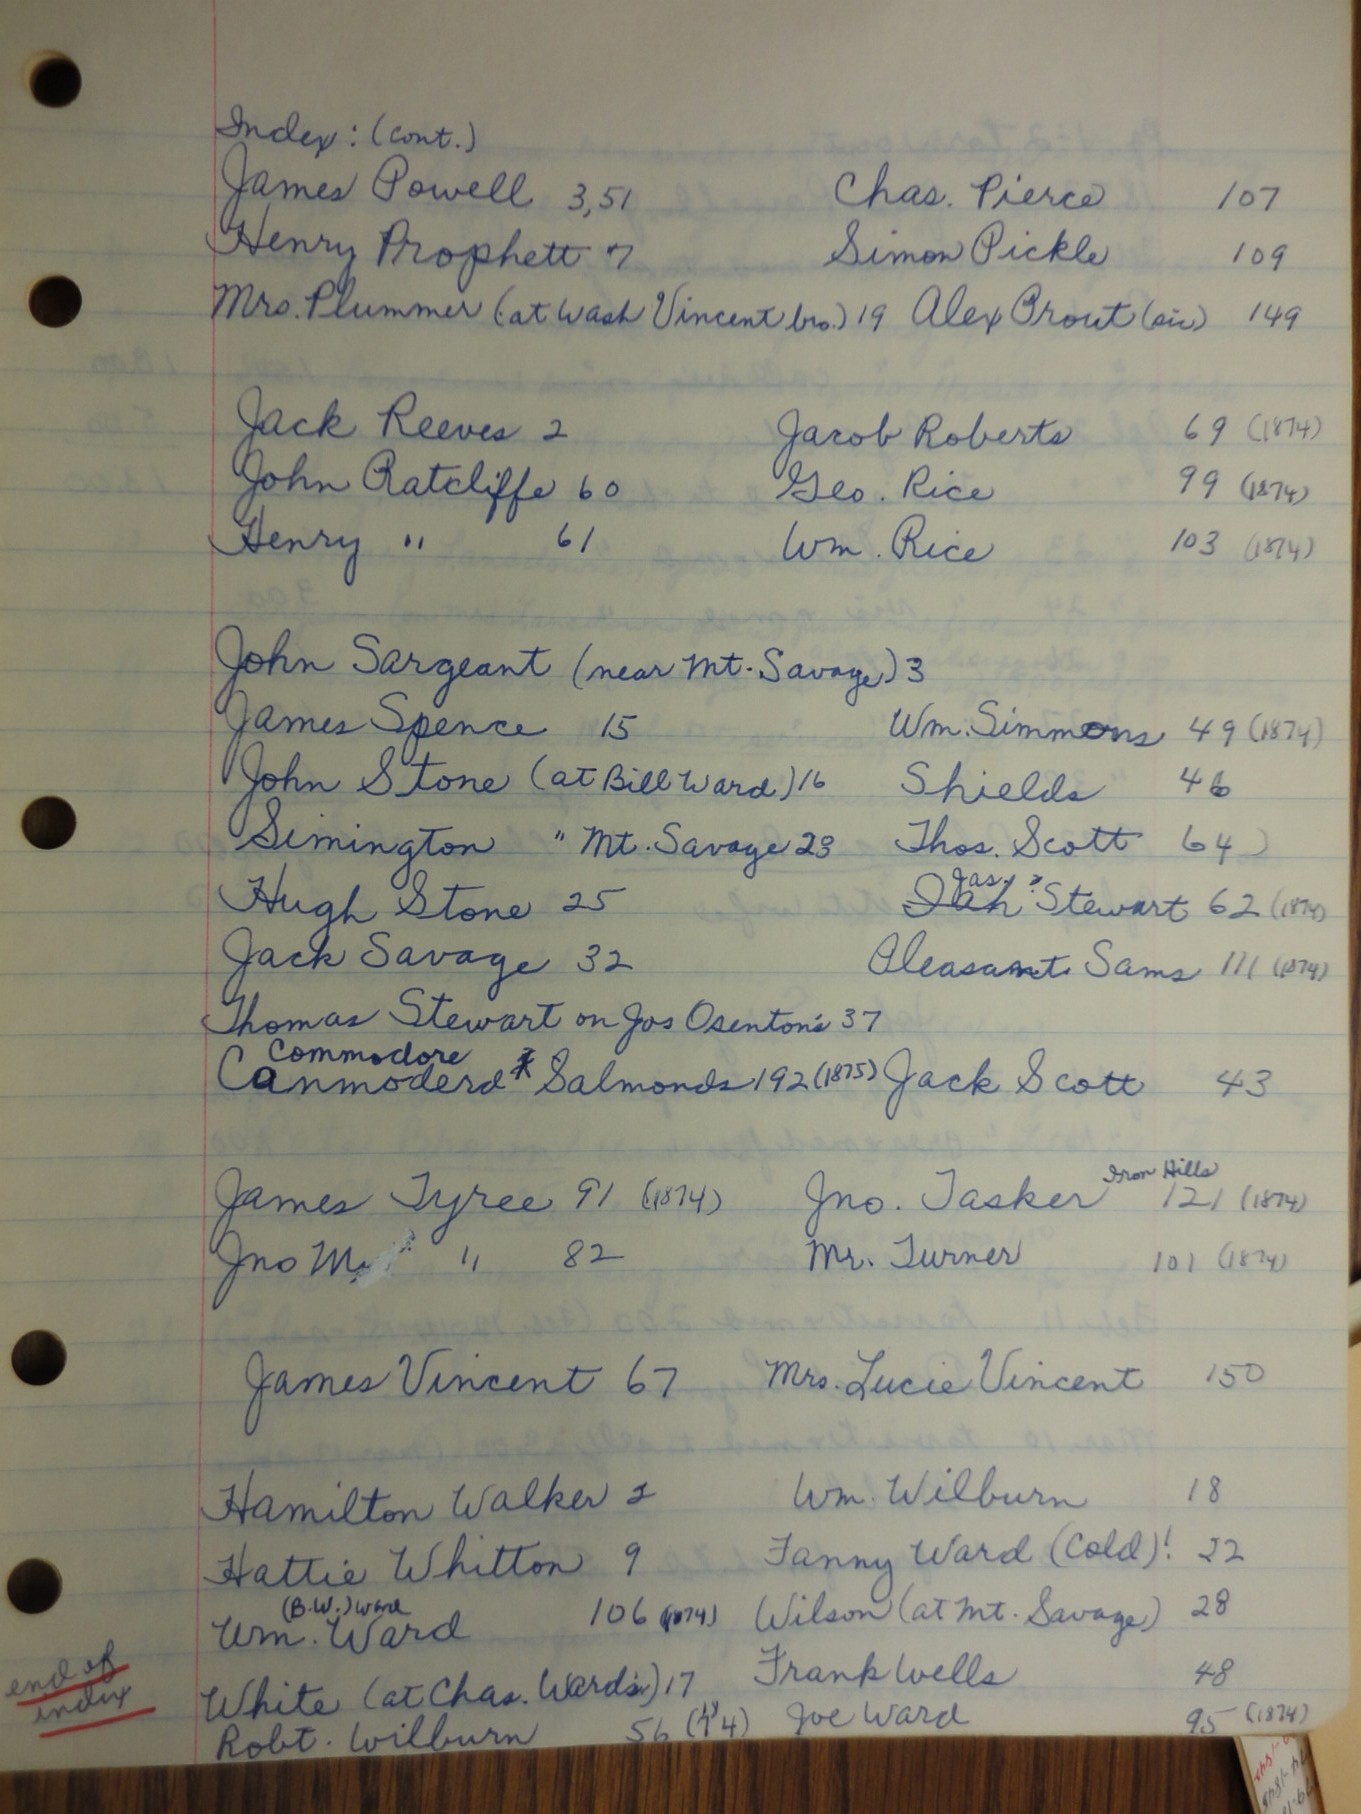 Index: (cont.)
James Powell 3,51 Chas. Pierce 107
Henry Prophett 7 Simon Pickle 109
Mrs. Plummer (at Wash Vincent bro.) 19 Alex Prout (sic) 149
Jack Reeves 2 Jacob Roberts 69 (1874)
John Ratcliffe 60 Geo. Rice 99 (1874)
Henry " 61 Wm. Rice 103 (1874)
John Sargeant (near Mt. Savage) 3
James Spence 15 Wm. Simmons 49 (1874)
John Stone (at Bill Ward) 16 Shields 46
Simington " Mt. Savage 23 Thos. Scott 64)
Hugh Stone 25 Jas.? Stewart 62 (1874)
Jack Savage 32 Pleasant Sams 111 (1874)
Thomas Stewart on Jos Osenton's 37
Commodore
Canmoderd * Salmonds 192 (1875) Jack Scott 43
Iron Hills
James Tyree 91 (1874) Jno. Tasker 121 (1874)
Jno M " 82 Mr. Turner 101 (1874)
James Vincent 67 Mrs. Lucie Vincent 150
Hamilton Walker 2 Wm. Wilburn 18
Hattie Whitton 9 Fanny Ward (Cold)! 22
(B.W.) Ward
Wm. Ward 106 (1874) Wilson (at Mt. Savage) 28
end of
index
White (at Chas. Ward's) 17 Frank Wells 48
Robt. Wilburn 56 (1874) Joe Ward 95 (1874)